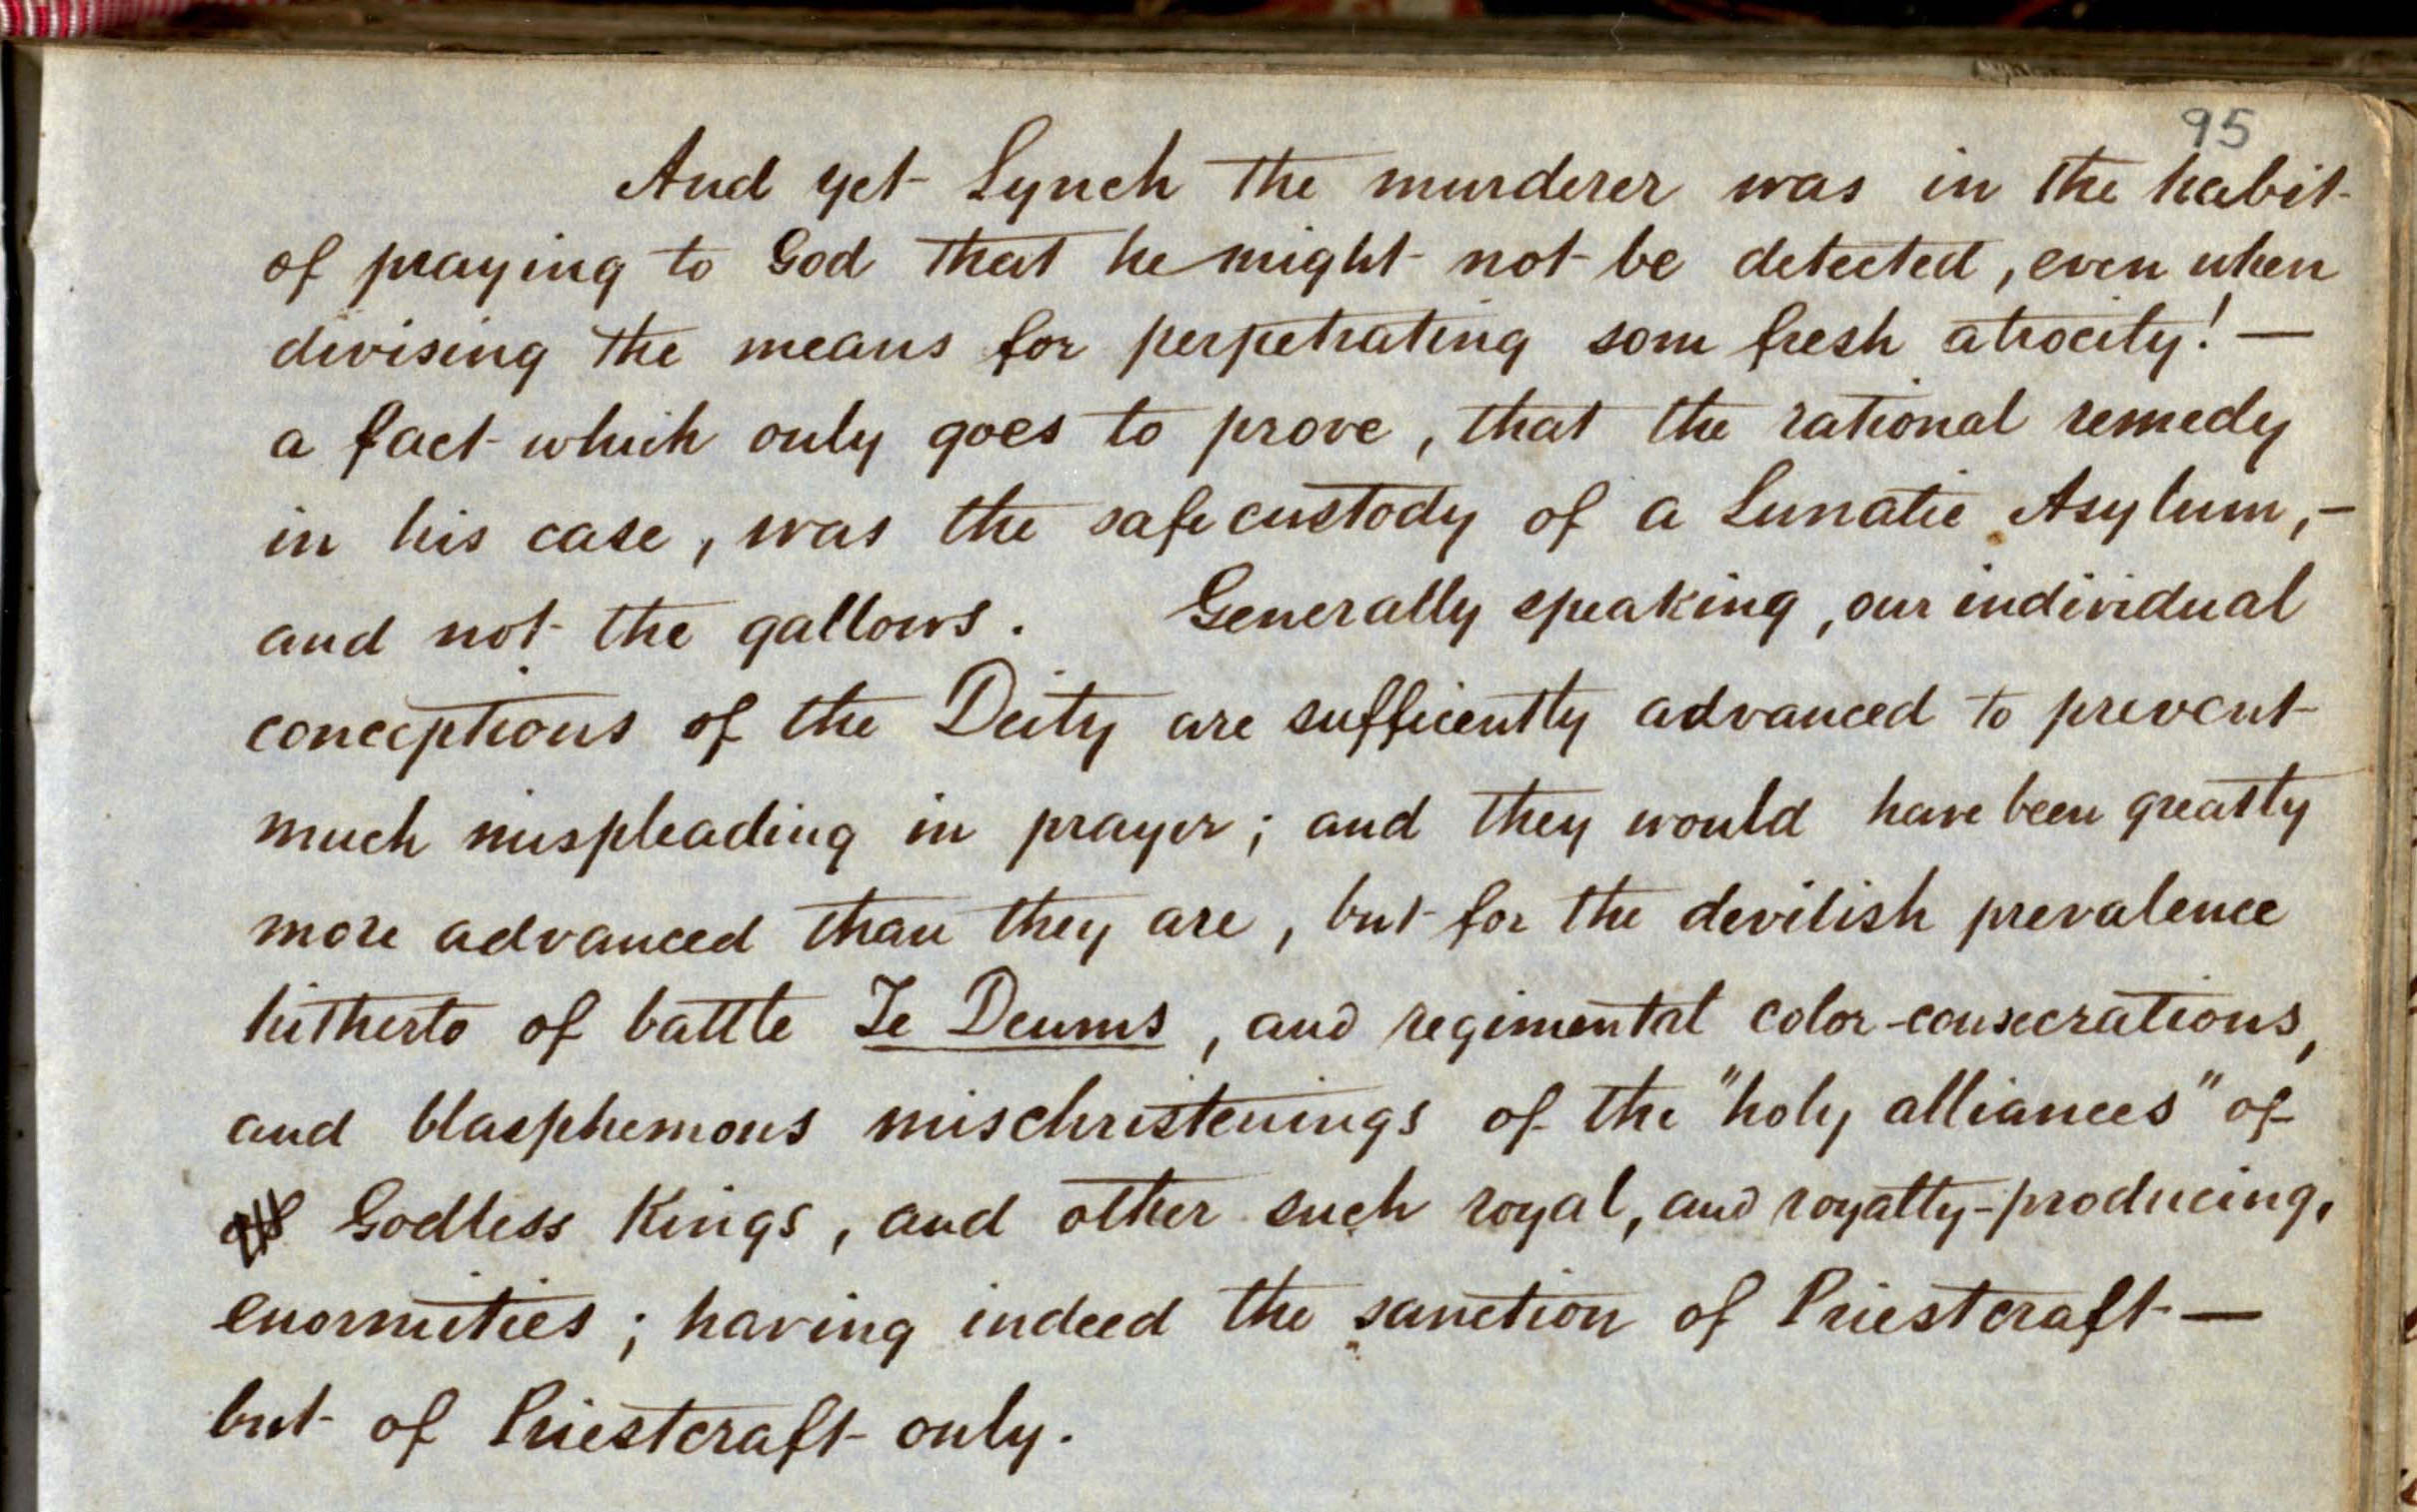 95
And yet Lynch the murderer was in the habit
of praying to God that he might not be detected, even when
divising the means for perpetrating som fresh atrocity! —
a fact which only goes to prove, that the rational remedy
in his case, was the safe custody of a Lunatic Asylum, —
and not the gallows. Generally speaking, our individual
conceptions of the Deity are sufficently advanced to prevent
much mispleading in prayer; and they would have been greatly
more advanced than they are, but for the devilish prevalence
hitherto of battle Te Deums, and regimental color-consecrations,
and blasphemous mischristenings of the "holy alliances" of
Godless Kings, and other such royal, and royalty-producing,
enormities; having indeed the sanction of Priestcraft —
but of Priestcraft only.